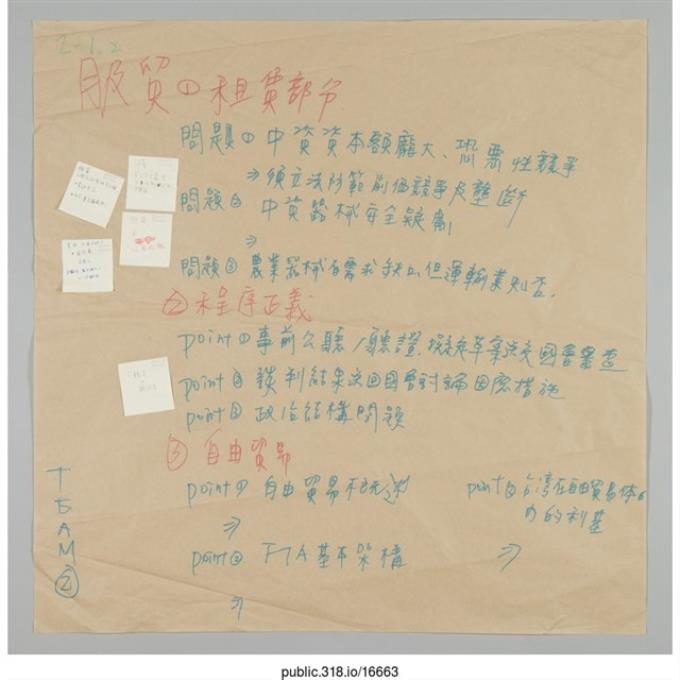 2-1.2
服貿① 租賃部分
問題① 中資資本額龐大、恐惡性競爭
⇒須立法防範削價競爭及壟斷
問題② 中資器械安全疑慮
⇒
問題③ 農業器械有需求缺口但運輸業則否.
② 程序正義
point① 事前公聽/聽證.擬定草案送交國會審查
point② 談判結果送回國會討論因應措施
point③ 政治結構問題
③ 自由貿易
point① 自由貿易不可逆
⇒
point② FTA基本架構
⇒
point③ 台灣在自由貿易体
內的利基
⇒
TEAM②
public.318.io/16663